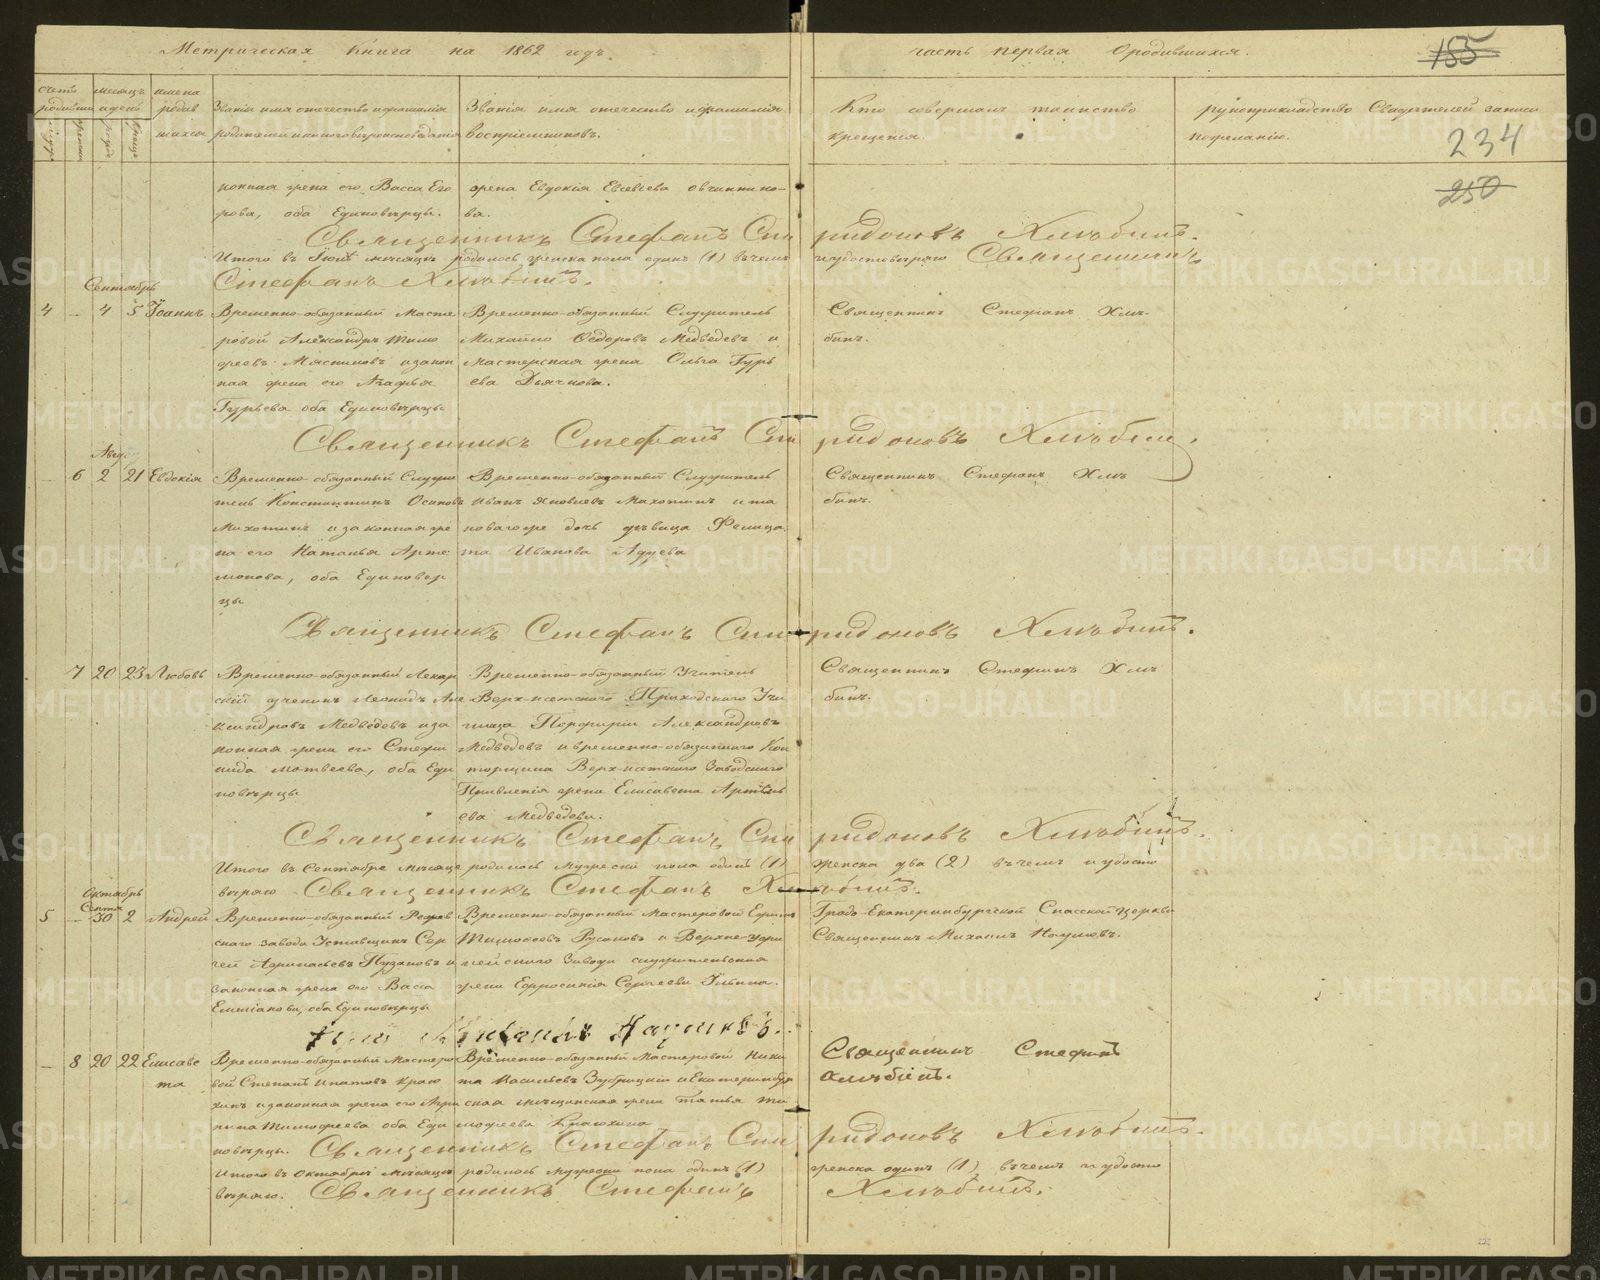 Метрическая Книга на 1862 годъ.
часть первая О родившихся.
185
счетъ родивших
месяцъ и день
имена родив шихся
Званiя имя отечество и фамилiя родителей и какого вероисповеданiя
Званiя имя отечество и фамилiя воспрiемниковъ.
Кто совершалъ таинство крещенiя.
рукоприкладство Свидетелей записи по желанiю.
234
250
конная жена его Васса Его
рова, оба Единоверцы.
жена Евдокiя Евсевiева овчиннико-
ва.
Священникъ Стефанъ Спиридоновъ Хлебинъ.
Итого въ Iюле месяце родилось женска пола одинъ (1) въ чемъ и удостоверяю Священникъ
Стефанъ Хлебинъ.
Сентябрь
4 — 4 5 Iоаннъ
Временно-обязанный Масте
ровой Александръ Тимо
феевъ Мясниковъ и закон
ная жена его Агафья
Гурьева оба Единоверцы
Временно-обязанный Служитель
Михайло Федоровъ Медведевъ и
Мастерская жена Ольга Гурь
ева Дьячкова.
Священникъ Стефанъ Хле-
бинъ.
Священникъ Стефанъ Спиридоновъ Хлебинъ.
Авгу.
— 6 2 21 Евдокiя
Временно-обязанный Служи
тель Константинъ Осиповъ
Махотинъ и законная же
на его Наталья Арте
монова, оба Единовер
цы
Временно-обязанный Служитель
Иванъ Яковлевъ Махотинъ и та
коваго же дочь девица Фелица
та Иванова
Священникъ Стефанъ Хле
бинъ.
Священникъ Стефанъ Спиридоновъ Хлебинъ.
7 20 23 Любовь
Временно-обязанный Лекар
скiй ученикъ Леонидъ Але
ксандровъ Медведевъ и за
конная жена его Стефа
нида Матвеева, оба Еди
новерцы
Временно-обязанный Учитель
Верх-исетского Приходского Учи
лища Порфирiй Александровъ
Медведевъ и временно-обязанного Кон
торщика Верх-исетского Заводского
Правленiя жена Елисавета
ева Медведева.
Священникъ Стефанъ Хле
бинъ.
Священникъ Стефанъ Спиридоновъ Хлебинъ.
Итого въ Сентябре месяце родилось Мужеска пола одинъ (1) женска два (2) въ чемъ и удосто
веряю Священникъ Стефанъ Хлебинъ.
Октябрь
Сентя
5 — 30 2 Андрей
Временно-обязанный
скаго завода Уставщикъ Сер
гей Афанасьевъ Пузановъ и
законная жена его Васса
Емелiанова, оба Единоверцы
Временно-обязанный Мастеровой Ефимъ
Тимофеевъ Русановъ и Верхне-
лейского Завода служительская
жена Евфросинiя Сергеева Ильина.
Градо-Екатеринбургской Спасской церкви
Священникъ Михаилъ Наумовъ.
Михаилъ Наумовъ.
— 8 20 22 Елисаве
та
Временно-обязанный Мастеро
вой Степанъ Ипатовъ Краю
хинъ и законная жена его Агри
пина Тимофеева оба Еди
новерцы.
Временно-обязанный Мастеровой Ники
та Васильевъ Зубрицкiй и Екатеринбур
ская мещанская жена Татья
мофеева Краюхина
Священникъ Стефанъ
Хлебинъ.
Священникъ Стефанъ Спиридоновъ Хлебинъ.
Итого въ Октябре месяце родилось мужеска пола одинъ (1) женска одинъ (1) въ чемъ и удосто
веряю. Священникъ Стефанъ Хлебинъ.
METRIKI.GASO-URAL.RU